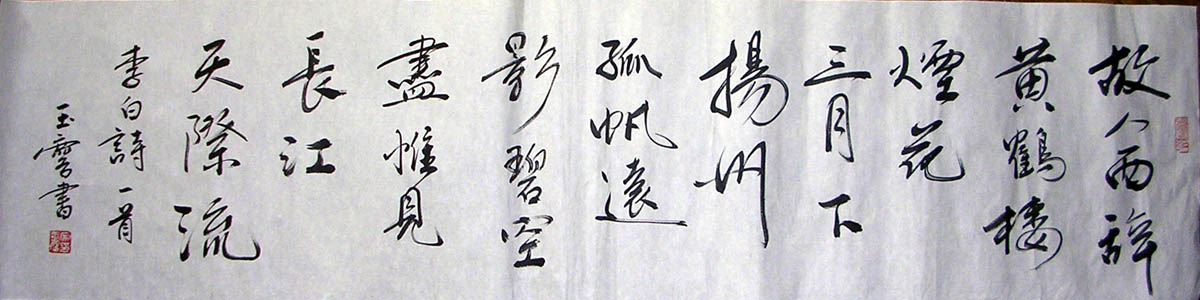 故人西辞
黄鶴楼
煙花
三月下
揚州
孤帆遠
影碧空
盡惟見
長江
天際流
李白詩一首
玉謦書